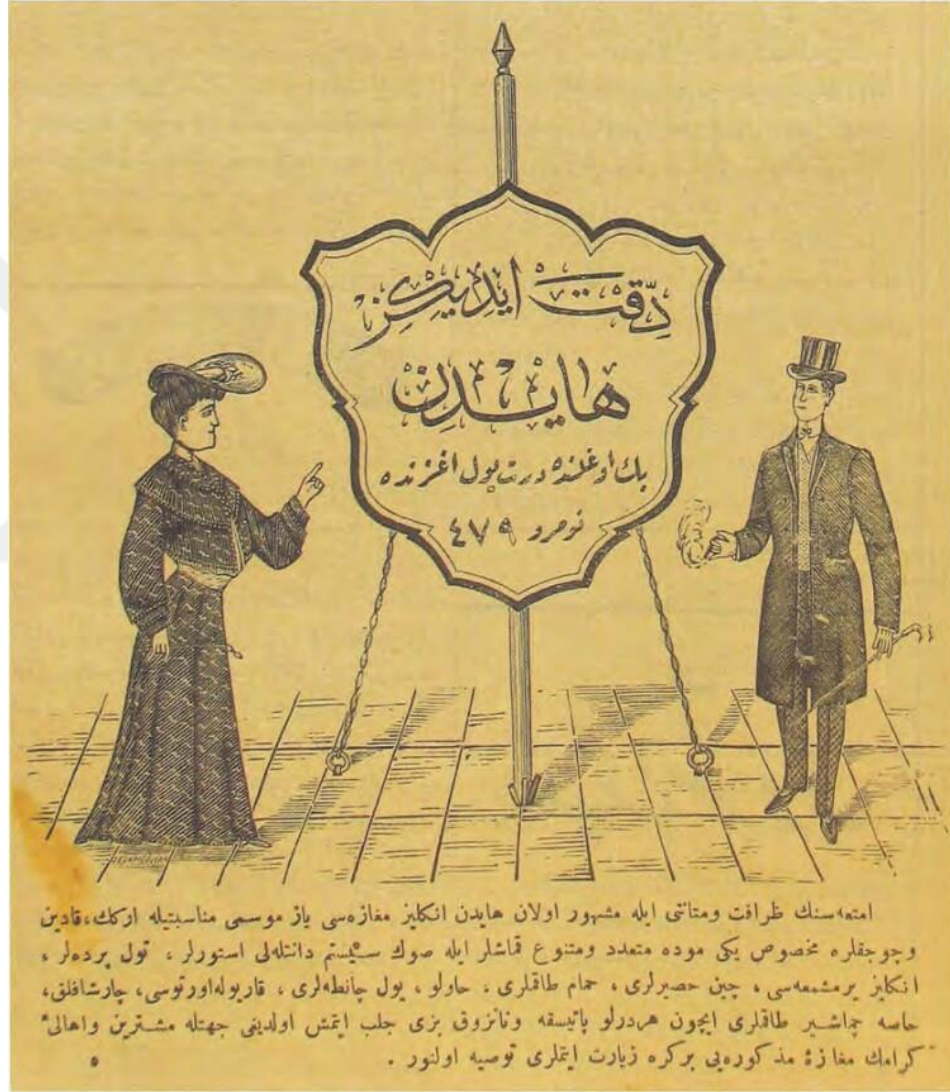 دقّت ایدیكز
هایدن
بك اوغلنده درت یول اغزنده
نومرو ٤٧٩
امتعه‌سنك ظرافت ومتانتی ایله مشهور اولان هایدن انكلیز مغازه‌سی یاز موسمی مناسبتیله اركك، قادین
وچوجقلره مخصوص یكی موده متعدد ومتنوع قماشلر ایله صوك سیستم دانتله‌لی استورلر، تول پرده‌لر،
انكلیز یرمشمعه‌سی، چین حصیرلری، حمام طاقملری، حاولو، یول چانطه‌لری، قاریوله‌اورتوسی، چارشافلق،
خاصه چماشیر طاقملری ایچون هردرلو پاتیسقه ونانزوق بزی جلب ایتمش اولدیغی جهتله مشترین واهالیٔ
كرامك مغازهٔ مذكوره‌یی بركره زیارت ایتملری توصیه اولنور.
٥